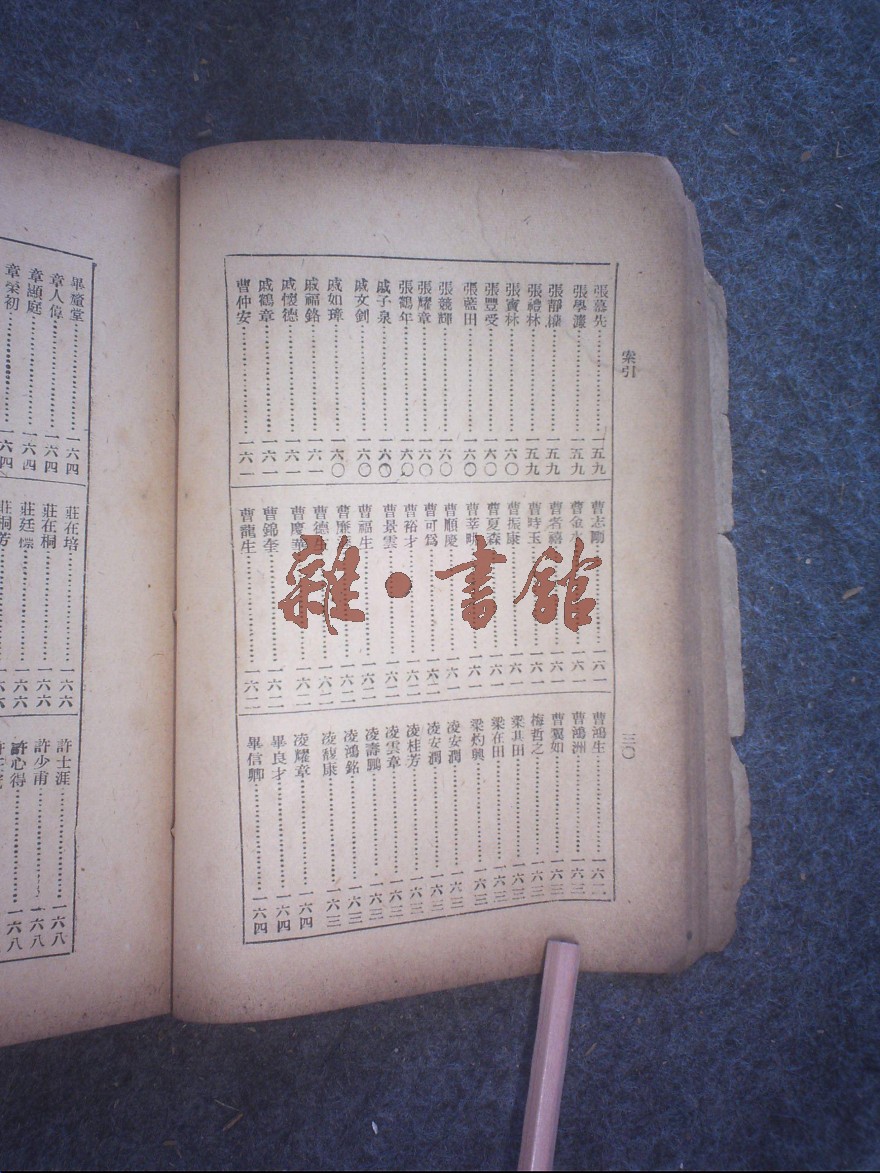 索引
三〇
張學濂 一五九
張禮林 一五九
張寶林 一六〇
張豐受 一六〇
張藍田 一六〇
張競輝 一六〇
張耀章 一六〇
張鶴年 一六〇
戚子泉 一六〇
戚文釗 一六〇
戚如璋 一六〇
戚福銘 一六一
戚懷德 一六一
戚鶴章 一六一
曹仲安 一六一
曹志剛 一六一
曹時玉 一六一
曹振康 一六一
曹夏森 一六一
曹順慶 一六一
曹可爲 一六二
曹裕才 一六二
曹景雲 一六二
曹福生 一六二
曹慶華 一六二
曹錦奎 一六二
曹龍生 一六二
曹鴻生 一六二
曹鴻洲 一六三
曹翼如 一六三
梅哲之 一六三
梁其田 一六三
梁在田 一六三
梁灼興 一六三
凌安潤 一六三
凌安潤 一六三
凌桂芳 一六三
凌雲章 一六三
凌壽鵬 一六三
凌鴻銘 一六三
凌馥康 一六三
凌耀章 一六四
畢良才 一六四
畢信卿 一六四
章人偉 一六四
章顯庭 一六四
章榮初 一六四
莊在培 一六六
莊在桐 一六六
莊桐芳 一六六
許士涯 一六八
許少甫 一六八
許心得 一六八
雜·書館